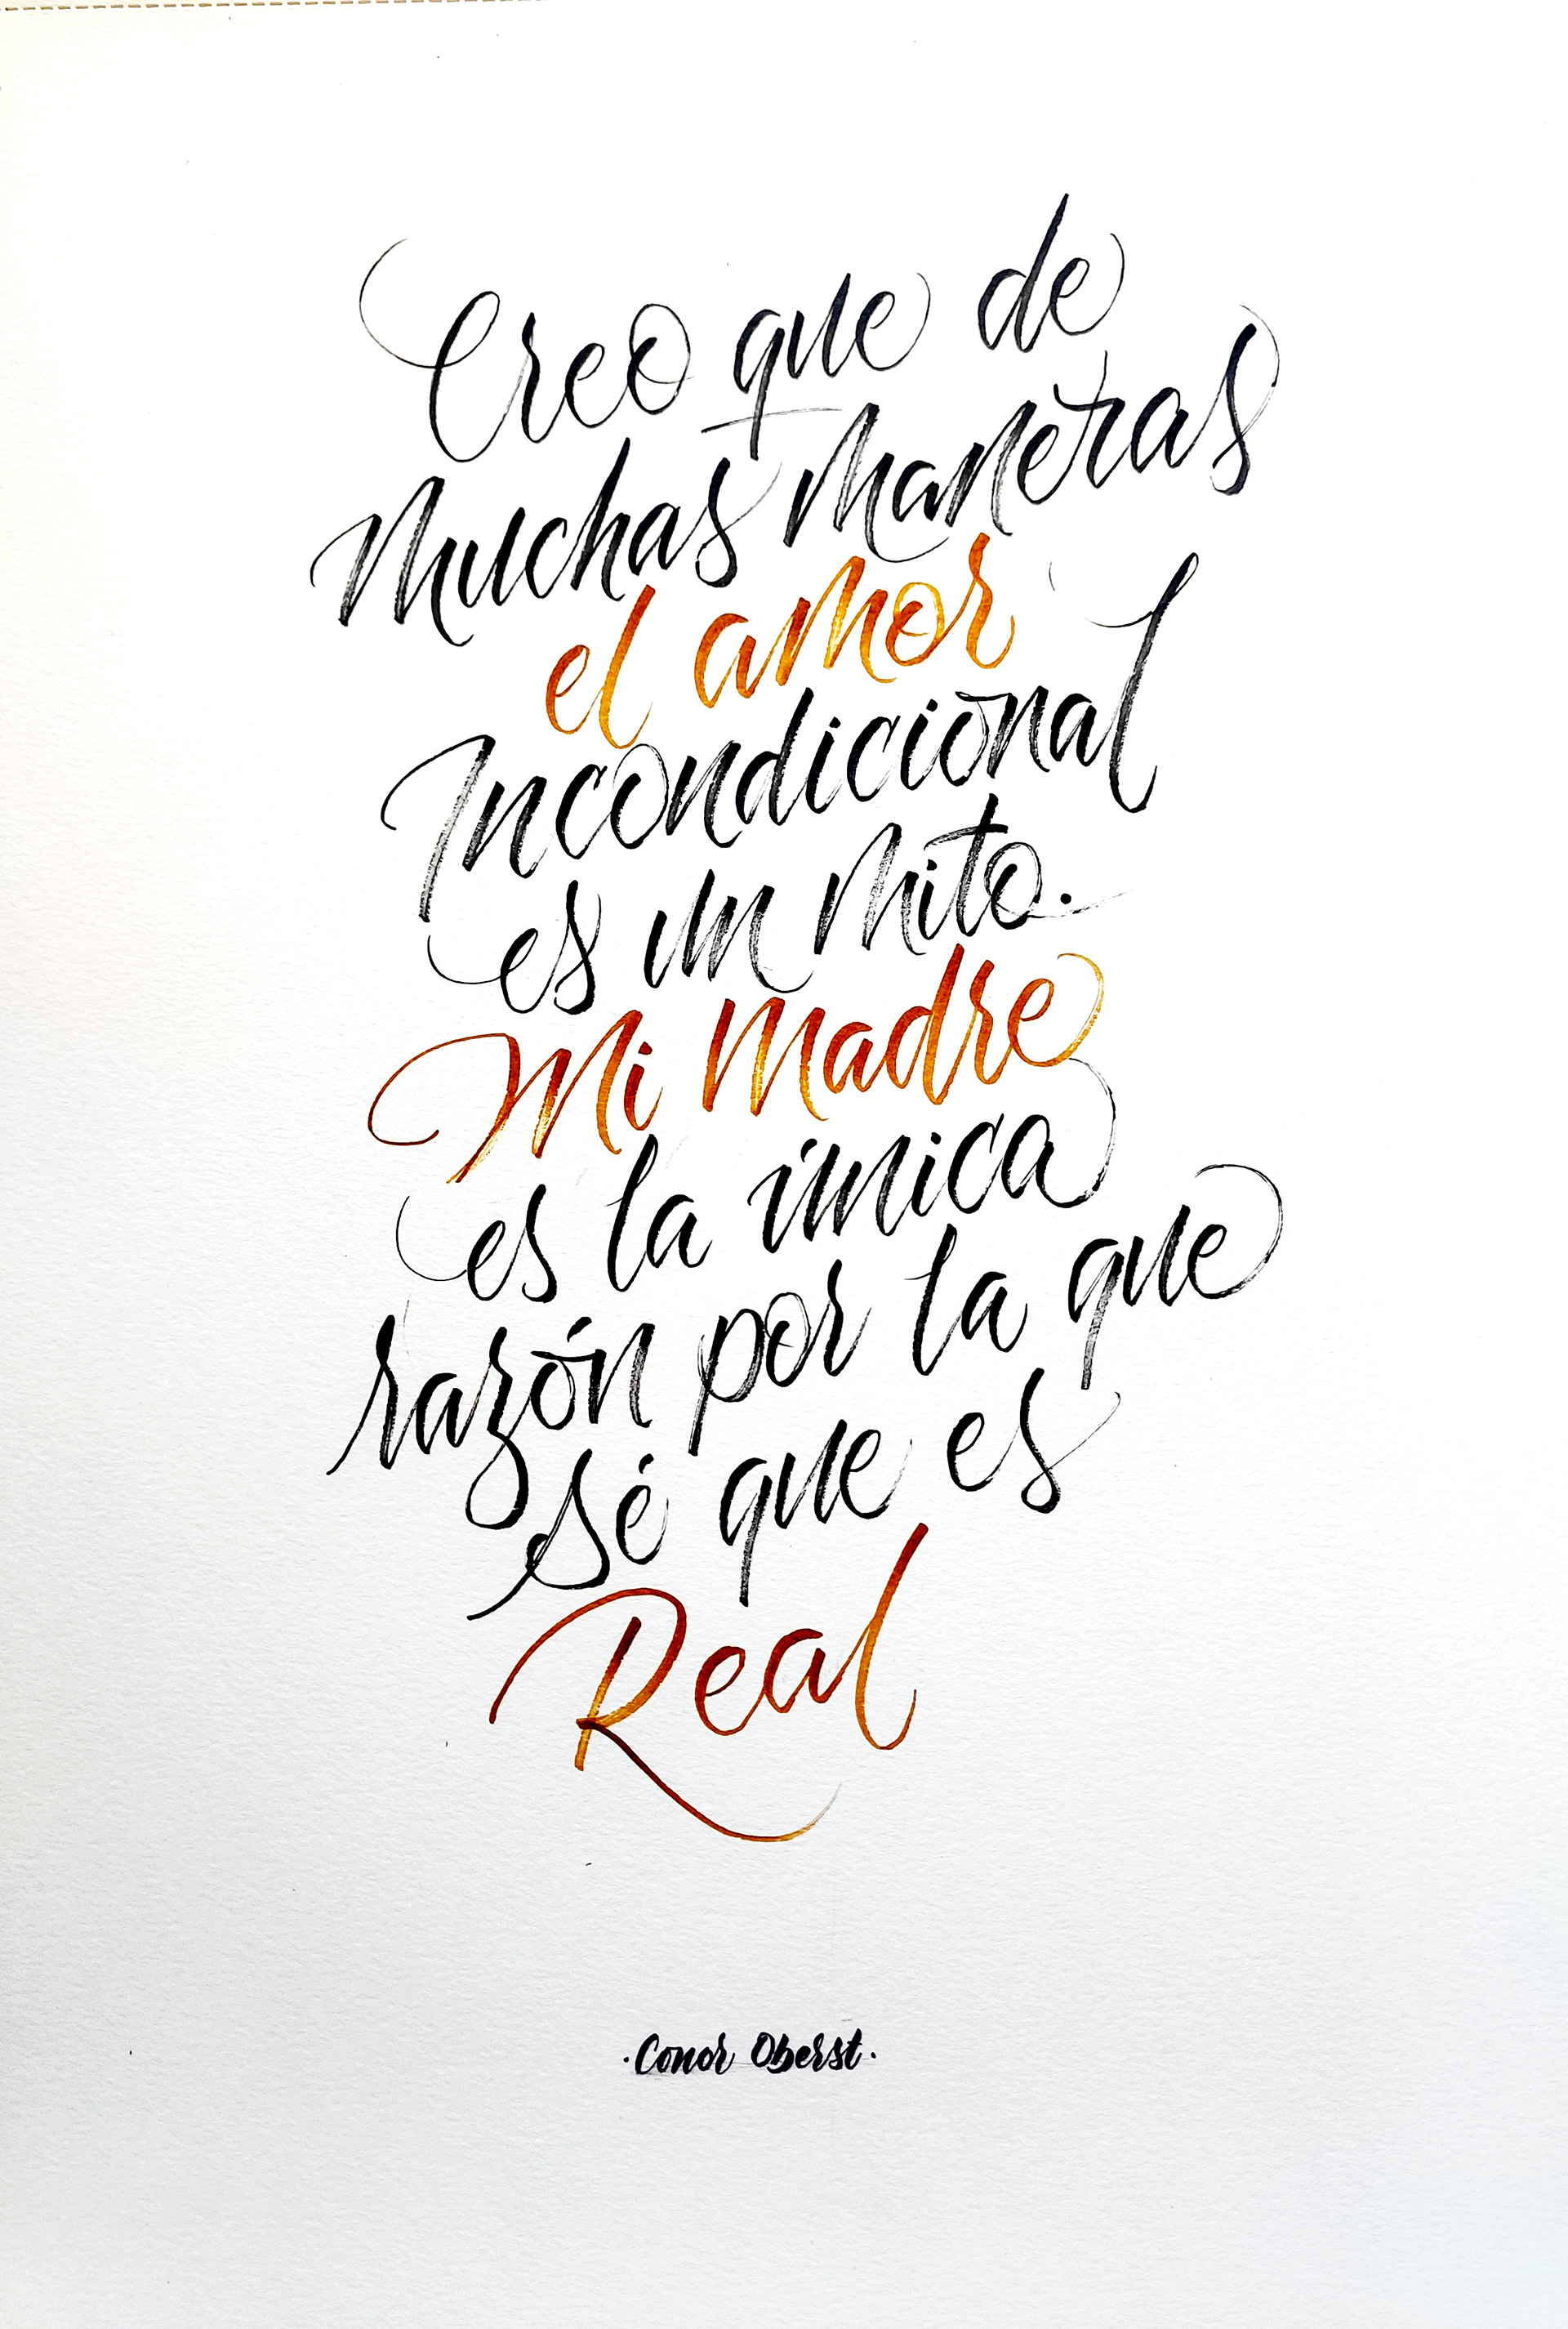 Creo que de
muchas maneras
el amor
Incondicional
es un mito.
Mi madre
es la única
razón por la que
sé que es
Real
·Conor Oberst.